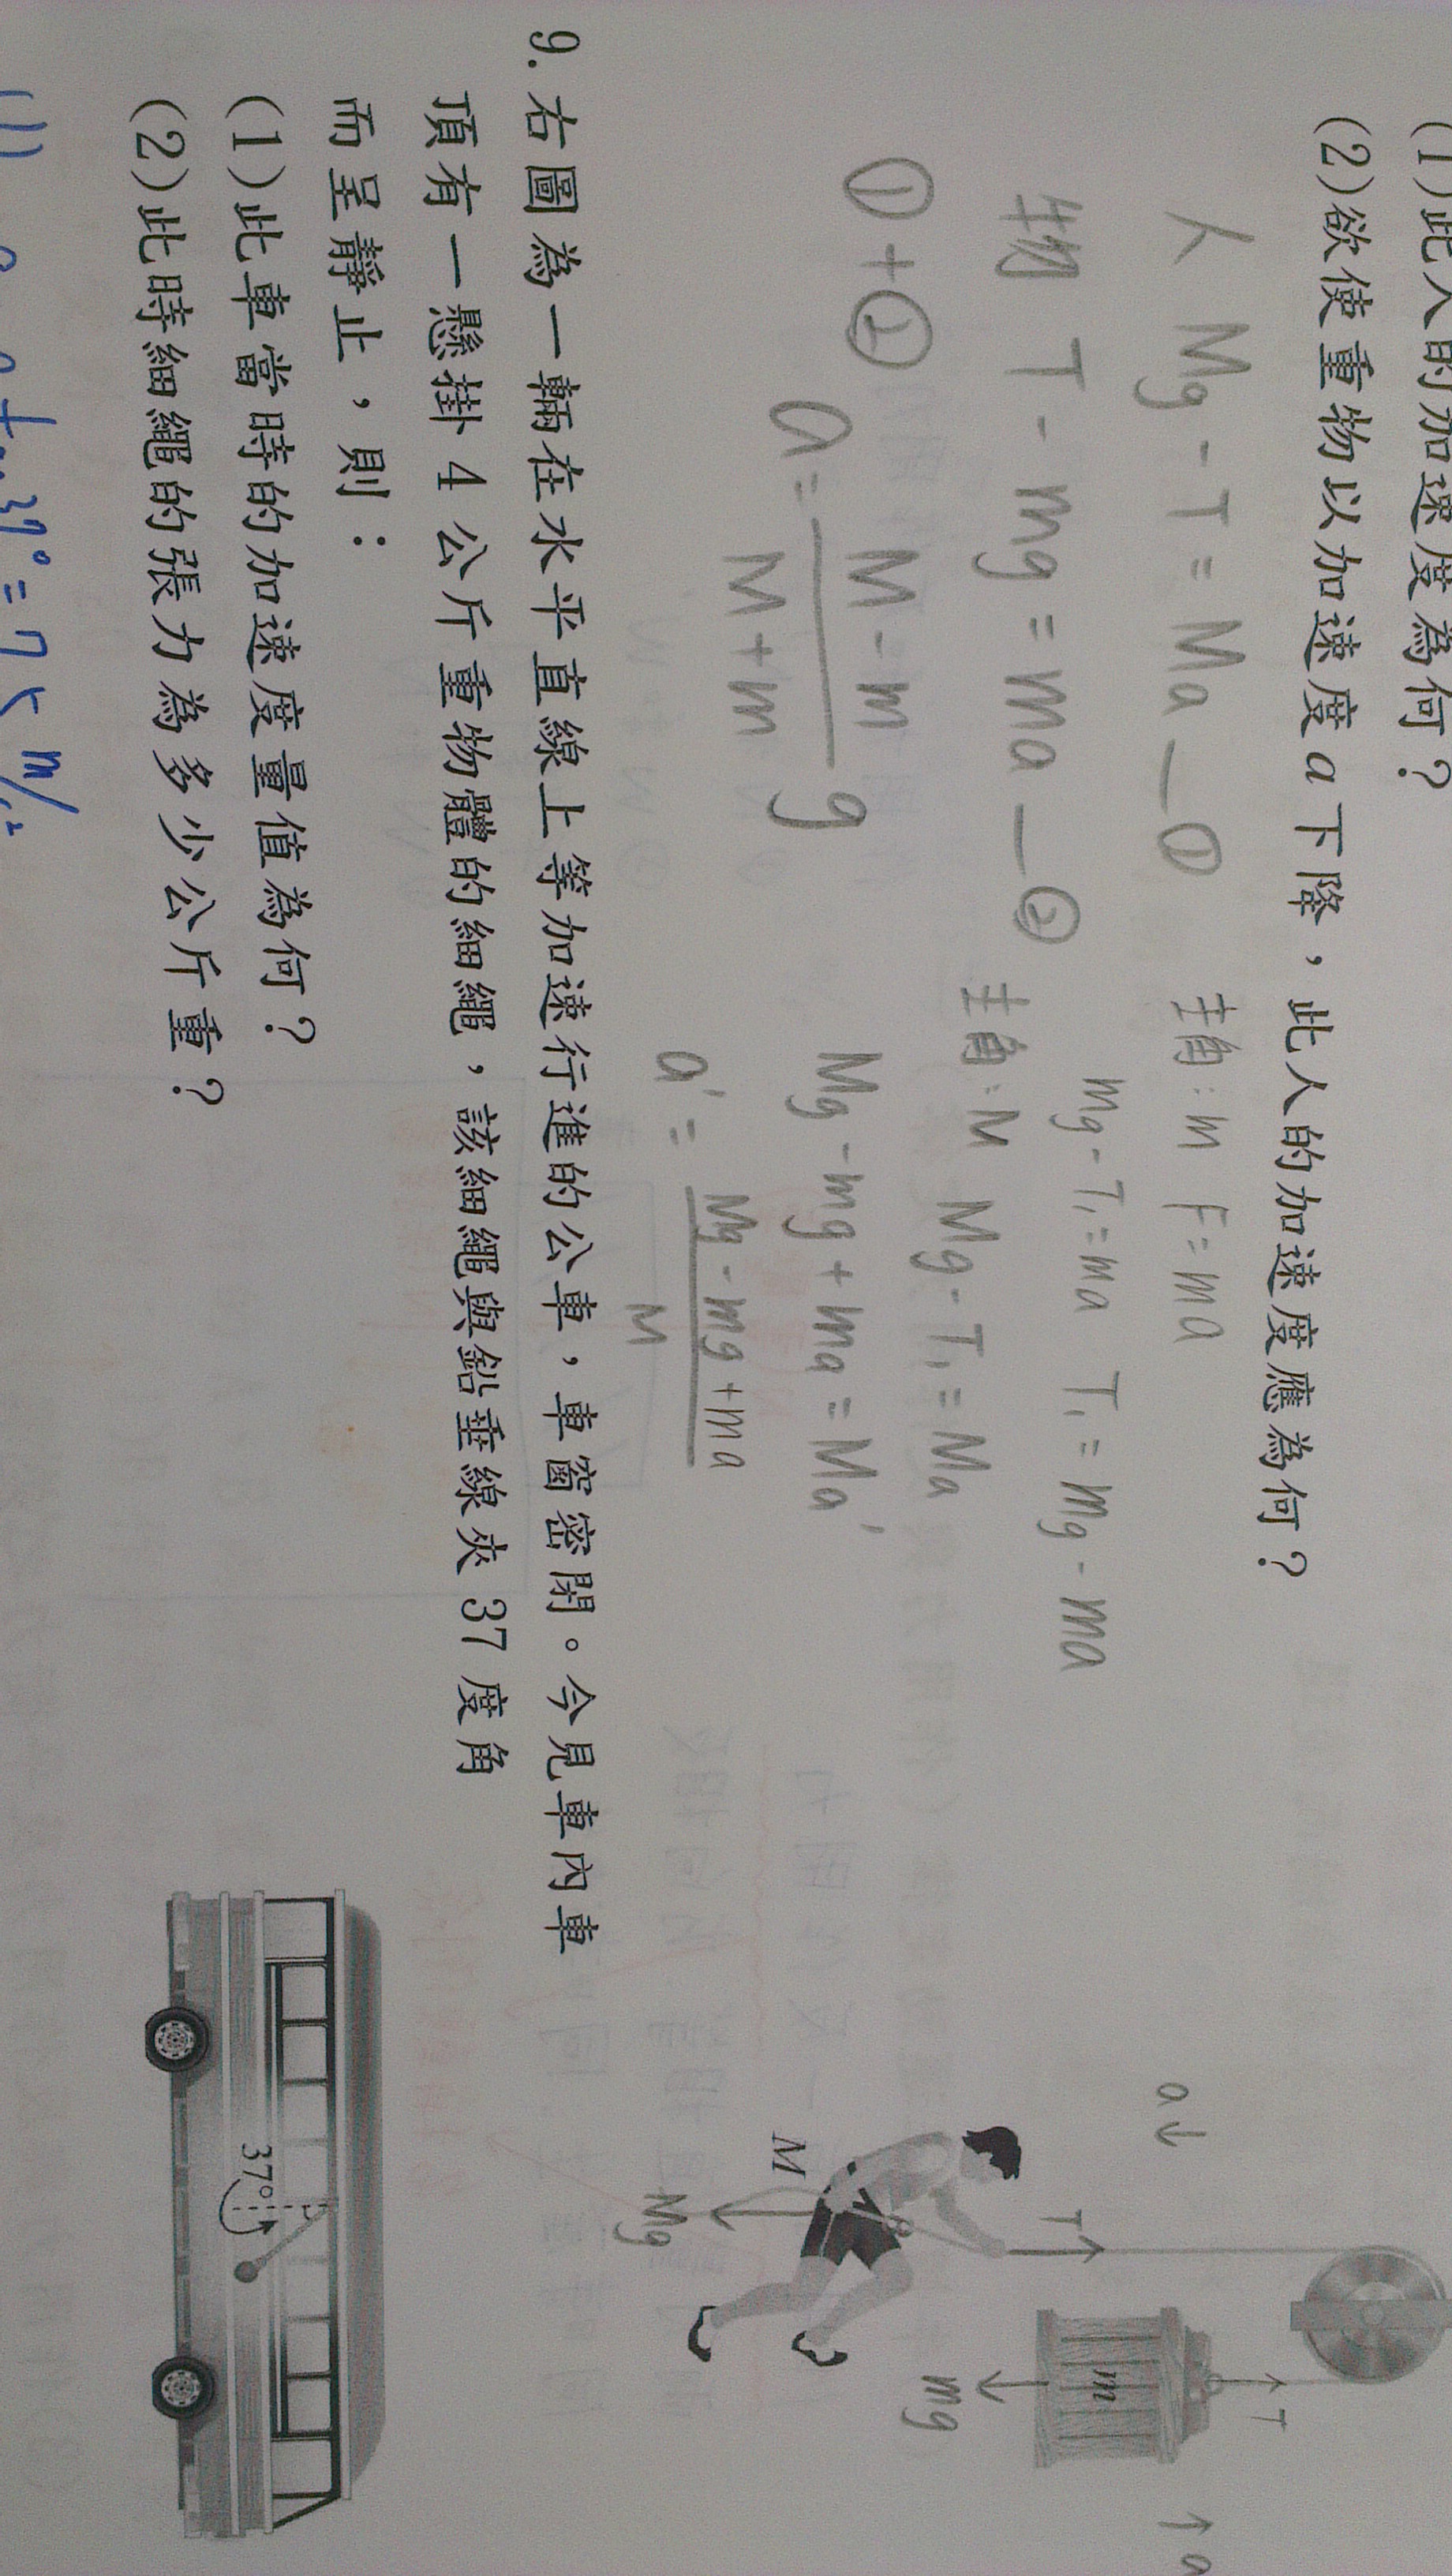 (1)此人的加速度為何？
(2)欲使重物以加速度a下降，此人的加速度應為何？
人 Mg - T = Ma —①
物 T - mg = ma —②
①+②
a = \frac{M-m}{M+m} g
主角：m F=ma
mg - T₁ = ma T₁ = mg - ma
主角：M Mg - T₁ = Ma
Mg - mg + ma = Ma'
a' = \frac{Mg - mg + ma}{M}
a↓
T
T
m
mg
M
Mg
↑a
9.右圖為一輛在水平直線上等加速行進的公車，車窗密閉。今見車內車
頂有一懸掛 4 公斤重物體的細繩，該細繩與鉛垂線夾 37 度角
而呈靜止，則：
(1)此車當時的加速度量值為何？
(2)此時細繩的張力為多少公斤重？
37°
(1)